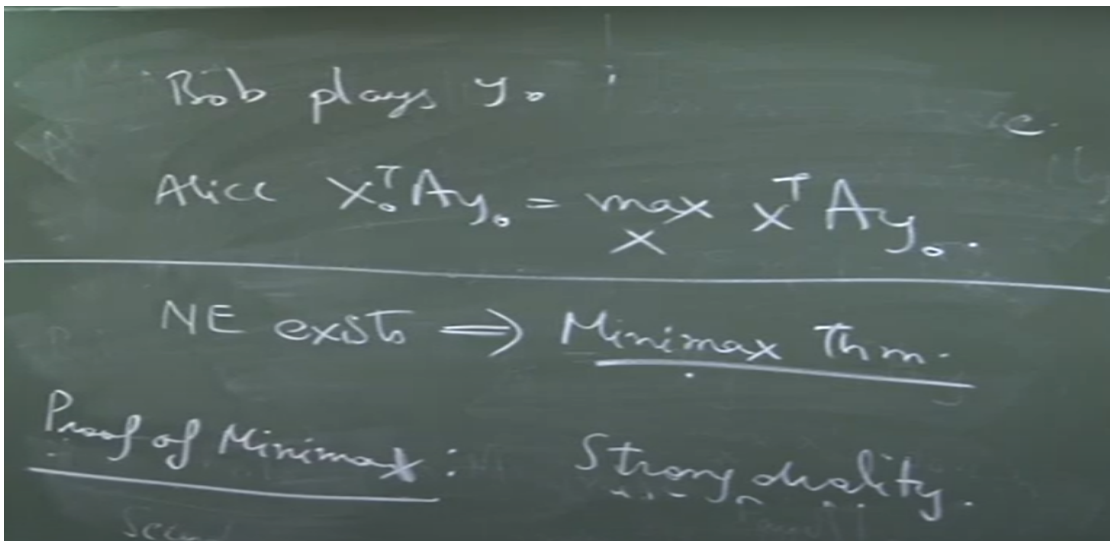 Bob plays y₀
Alice x₀ᵀAy₀ = max xᵀAy₀.
x
NE exists ⇒ Minimax Thm.
Proof of Minimax: Strong duality.